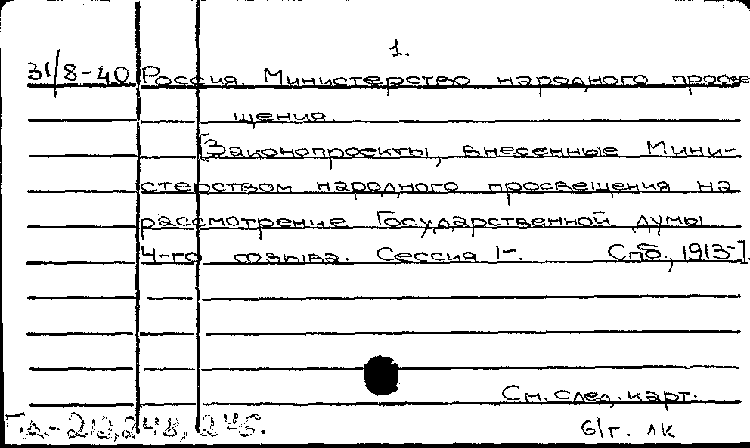 1.
31/8-40 Россия. Министерство народного просве
щения.
[Законопроекты, внесенные Мини-
стерством народного просвещения на
рассмотрение Государственной думы
4-го созыва. Сессия 1-. Спб., 1913-].
См. след. карт.
61г. лк